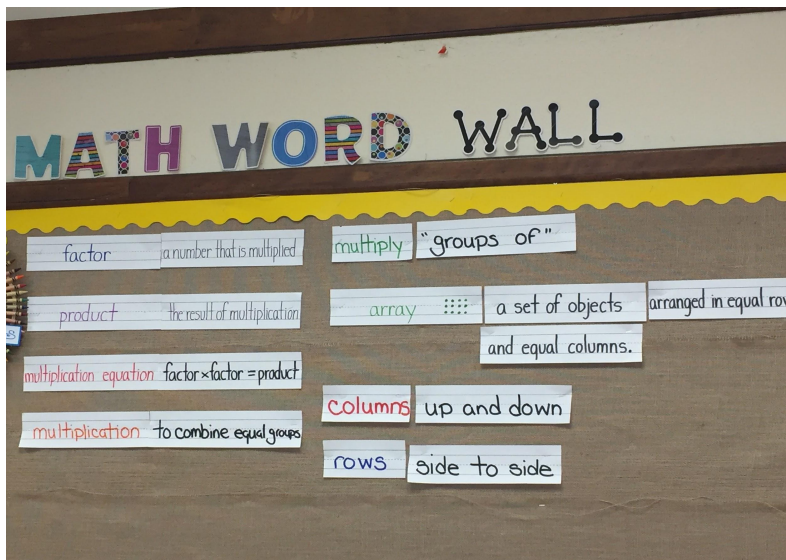 MATH WORD WALL
factor a number that is multiplied
product the result of multiplication
multiplication equation factor×factor=product
multiplication to combine equal groups
multiply "groups of"
array a set of objects arranged in equal row
and equal columns.
columns up and down
rows side to side